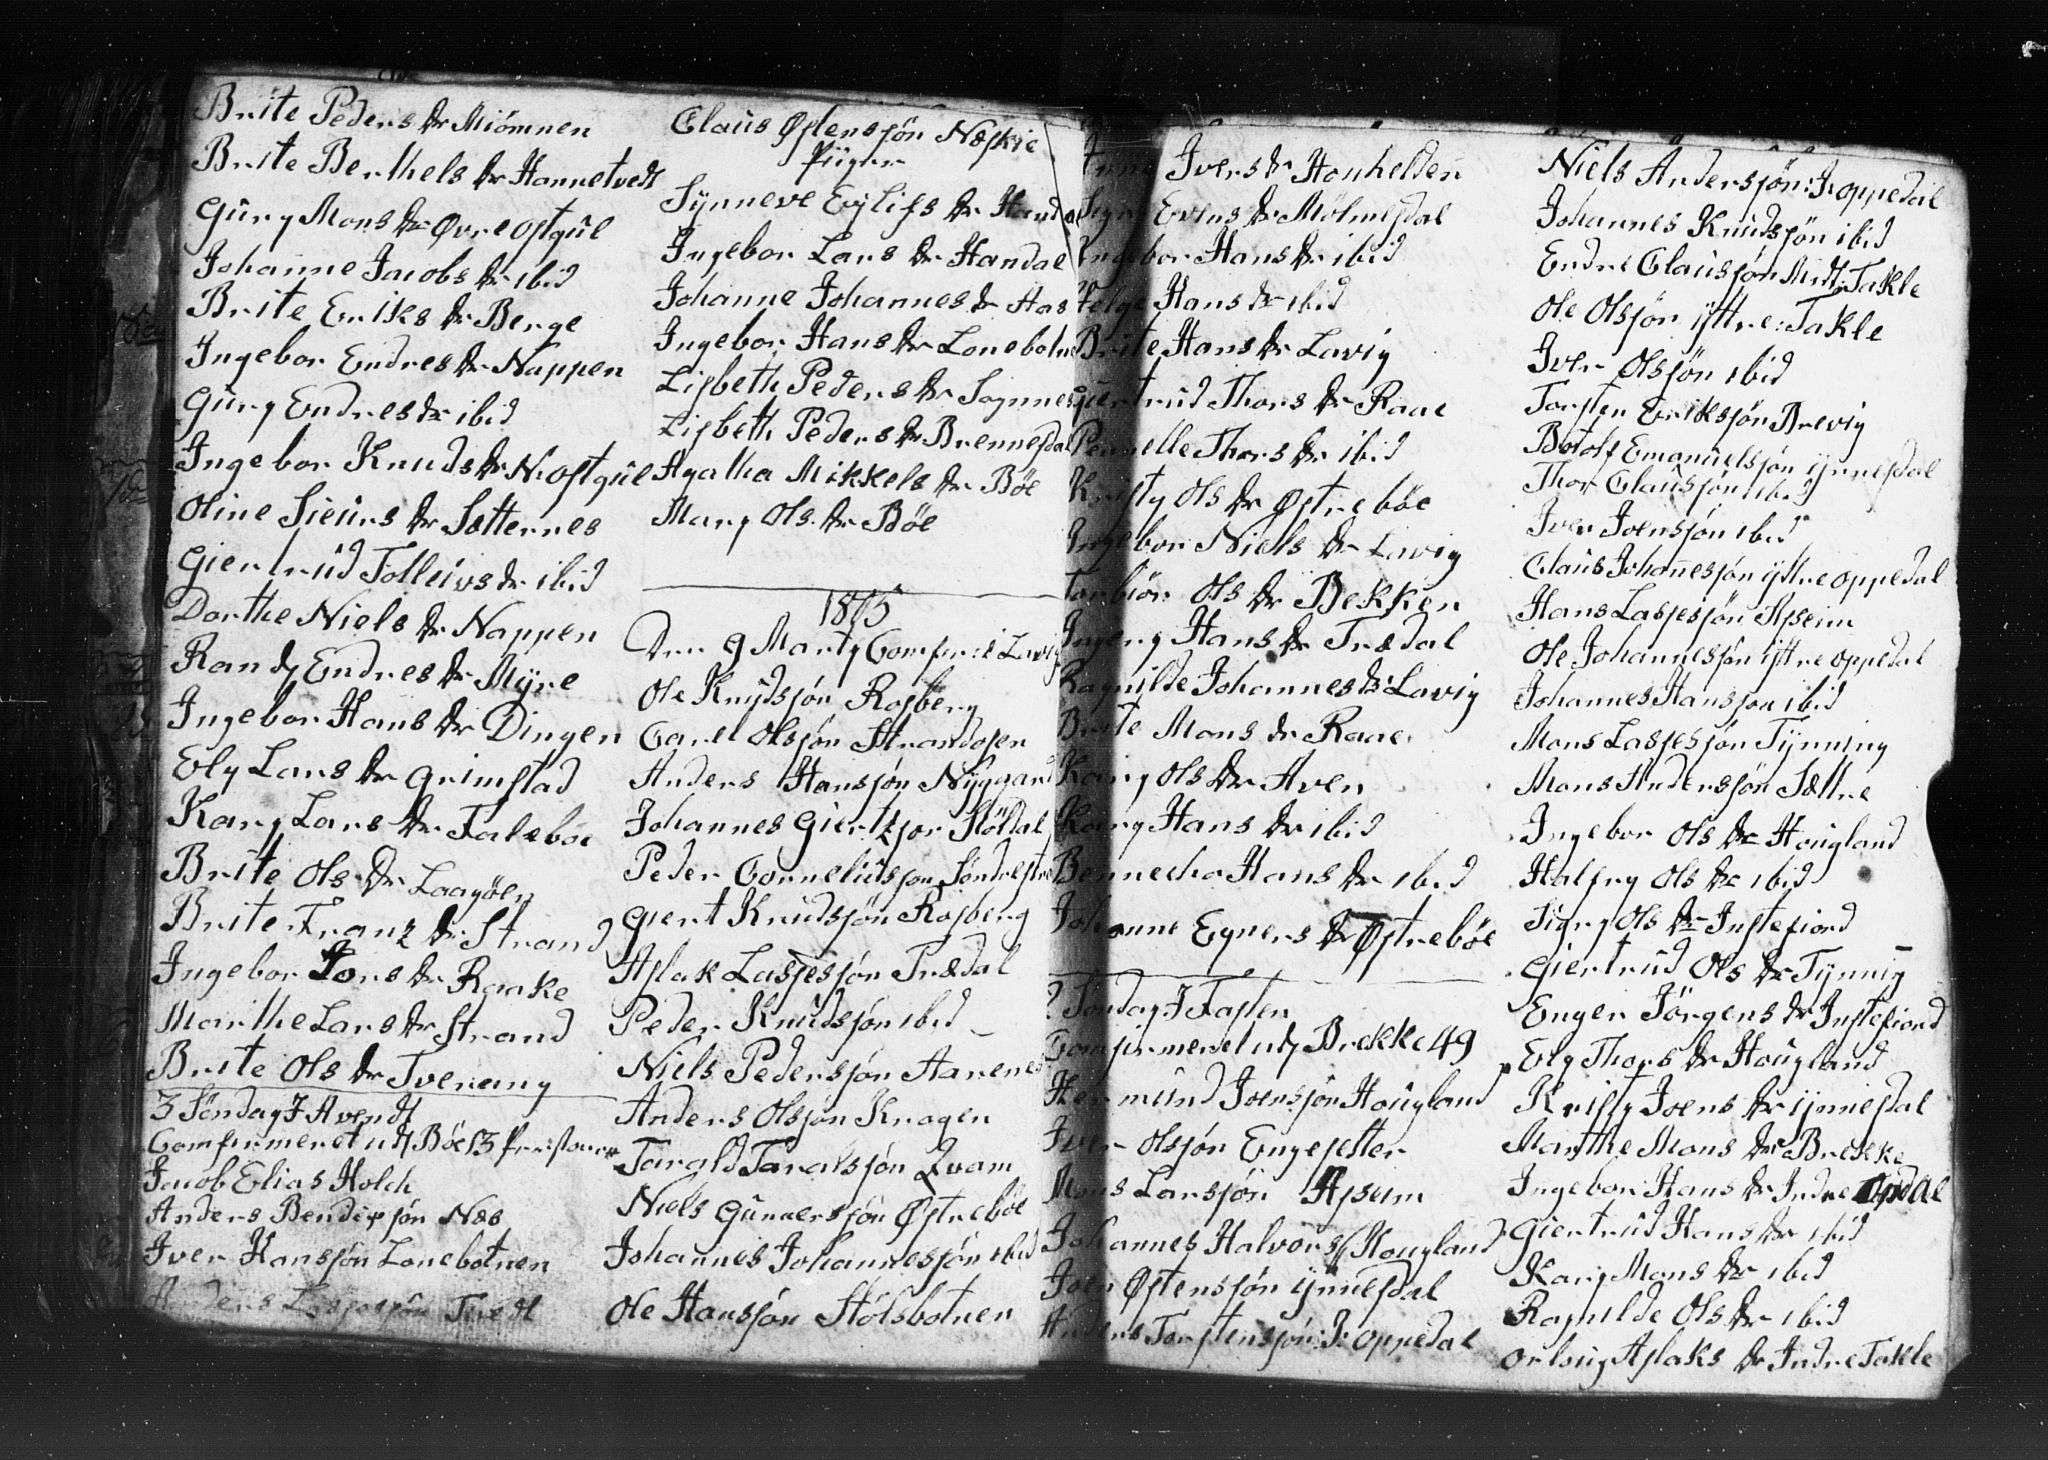 Brite Peders dr Miömnen
Brite Berthels dr Hannetvedt
Gùry Mons dr Øvre Ostgùl
Johanne Jacobs dr ibid
Brite Eriks dr Berge
Ingebor Endres dr Nappen
Gùry Endres dr ibid
Ingebor Knuds dr N: Ostgùl
Oline Siùrs dr Sætternes
Giertrùd Tolleivs dr ibid
Dorthe Niels dr Nappen
Randj Endres dr Myre
Ingebor Hans dr Dingen
Ely Lars dr Grimstad
Kary Lars dr Taleböe
Brite Ols dr Laagöen
Brite Franz dr Strand
Ingebor Iors dr Raake
Marthe Lars dr Strand
Brite Ols dr Tvereny
3 Söndag I Avendt
Comfirmeret udj Böe 13
Jacob Elias Holch
Anders Bendixsjön Næs
Iver Hansjön Lonebotnen
Anders Lassesjön Tvedt
Claùs Østensjön Næskie
Piiger
Synneve Eylifs dr
Ingebor Lars dr Handal
Johanne Johannes dr
Ingebor Hans dr Lonebotne
Lisbeth Peders dr Sognnes
Lisbeth Peders dr Brennesdal
Agatha Mikkels dr Böe
Mary Ols dr Böe
1815
Den 9 Martj Comfir: i Lavig
Ole Knudsjön Rosberg
Carel Olsjön Strandosen
Anders Hansjön Nyggard
Johannes Giertsjor Stöldal
Peder Cornelùisjon
Giert Knùdsjön Rosberg
Aslak Lassesjön Trædal
Peder Knùdsjön ibid
Niels Pedersjön
Anders Olsjon Kragen
Tarald Taralsjön Qvam
Niels Gunnersjön Østreböe
Johannes Johannesjön ibid
Ole Hansjön Stölsbotnen
Anne Ivers dr
Evens dr Molmesdal
Ingebor Hans dr ibid
Helge Hans dr ibid
Brite Hans dr Lavig
Giertrùd Thors dr Raae
Pernelle Thors dr ibid
Kristy Ols dr Østreböe
Ingebor Niels dr Lavig
Torbiör Ols dr Bekken
Ingery Hans dr Trædal
Ragnilde Johannes dr Lavig
Brite Mons dr Raae
Kary Ols dr Aven
Kary Hans dr ibid
Bennecha Hans dr ibid
Johanne Egners dr Østreböe
2 Söndag I Fasten
Comfirmeret udj Brekke 49
Hermùnd Joensjön Hoùgland
Iver Olsjön Engesetter
Mons Larsjön Asseim
Johannes Halvorss Hougland
Joen Østensjön ynnesdal
Anders Torstensjön: I: Oppedal
Niels Andersjön: I: oppedal
Johannes Knùdsjön ibid
Endre Claùsjön Midt: Takle
Ole Olsjör yttre: Takle
Iver Olsjön ibid
Torsten Eriksjön Brevig
Botolf Emanùelsjön ynnesdal
Thor Claùsjön ibid
Iver Joensjön ibid
Claùs Johannesjön yttre oppedal
Hans Lassesjön Asseim
Ole Johannesjön yttre oppedal
Johannes Hansjon ibid
Mons Lassesjön Tynning
Mons Andersjön Sættre
Ingebor Ols dr Hoùgland
Halfry Ols dr ibid
Sigry Ols dr Instefiord
Giertrùd Ols dr Tynnig
Enger Jörgens dr Instefiord
Ely Thors dr Hoùgland
Kristy Joens dr ynnesdal
Marthe Mons dr Brekke
Ingebor Hans dr Indre Opdal
Giertrùd Hans dr ibid
Kary Mons dr ibid
Ragnilde Ols dr ibid
Orloug Aslaks dr Indre Takle